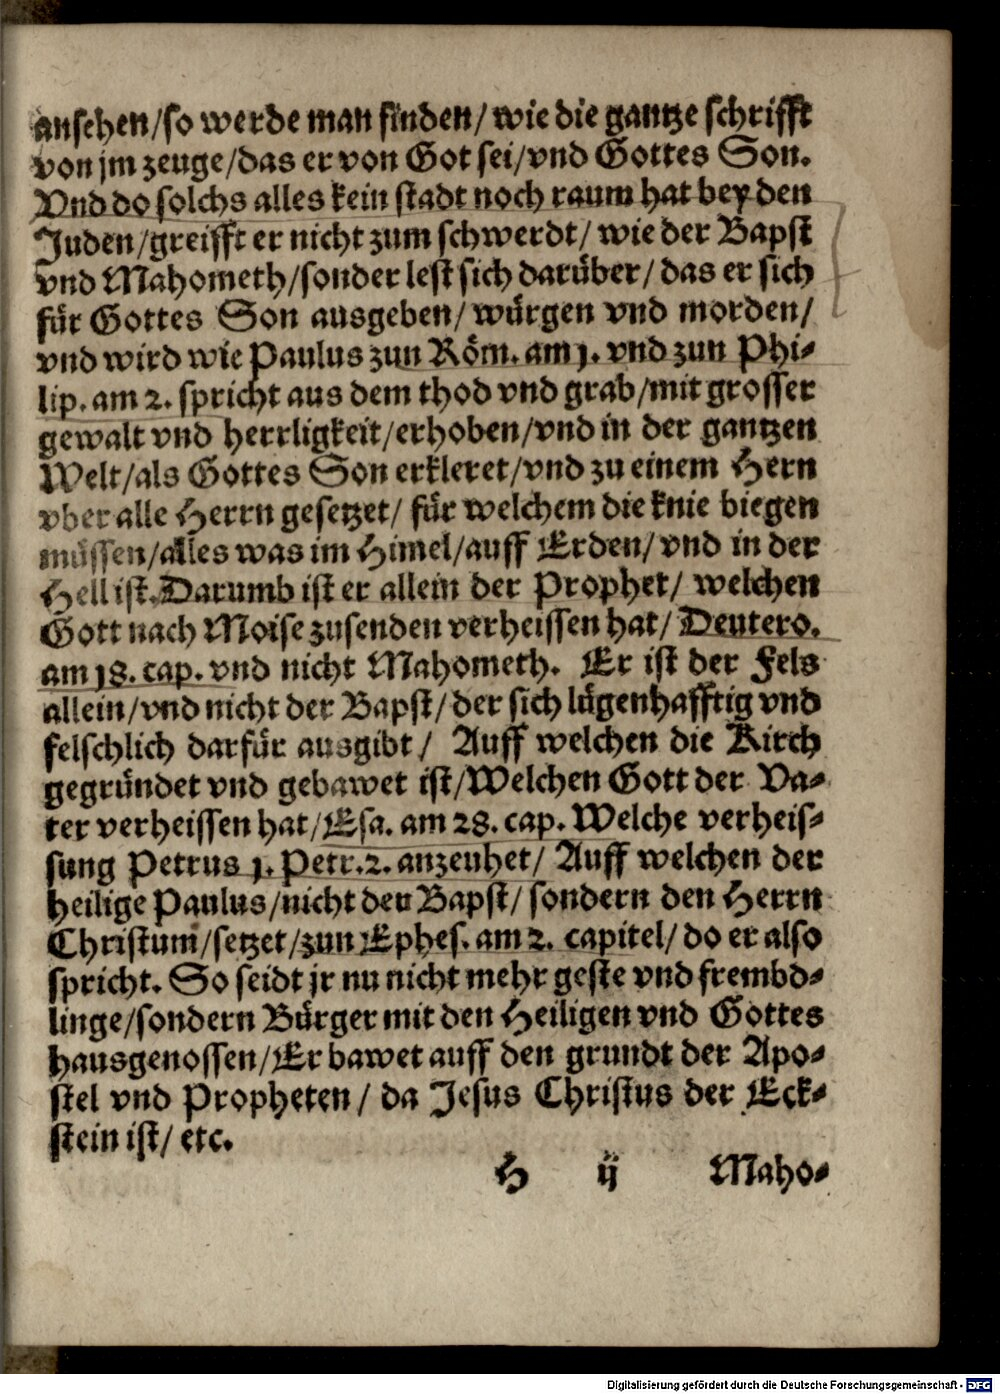 ansehen/so werde man finden/ wie die gantze schrifft
von jm zeuge/das er von Got sei/vnd Gottes Son.
Vnd do solchs alles kein stadt noch raum hat bey den
Juden/greifft er nicht zum schwerdt/ wie der Bapst
vnd Mahometh/sonder lest sich darüber/ das er sich
für Gottes Son ausgeben/ würgen vnd morden/
vnd wird wie Paulus zun Röm. am j. vnd zun Phi-
lip. am 2. spricht aus dem thod vnd grab/mit grosser
gewalt vnd herrligkeit/erhoben/vnd in der gantzen
Welt/als Gottes Son erkleret/vnd zu einem Hern
vber alle Herrn gesetzet/ für welchem die knie biegen
müssen/alles was im Himel/auff Erden/ vnd in der
Hell ist. Darumb ist er allein der Prophet/ welchen
Gott nach Moise zusenden verheissen hat/ Deutero.
am 18. cap. vnd nicht Mahometh. Er ist der Fels
allein/vnd nicht der Bapst/der sich lügenhafftig vnd
felschlich darfür ausgibt/ Auff welchen die Kirch
gegründet vnd gebawet ist/Welchen Gott der Va-
ter verheissen hat/Esa. am 28. cap. Welche verheis-
sung Petrus j. Petr.2. anzeuhet/ Auff welchen der
heilige Paulus/nicht den Bapst/ sondern den Herrn
Christum/setzet/zun Ephes. am 2. capitel/ do er also
spricht. So seidt jr nu nicht mehr geste vnd frembd-
linge/sondern Bürger mit den Heiligen vnd Gottes
hausgenossen/Erbawet auff den grundt der Apo-
stel vnd Propheten/ da Jesus Christus der Eck-
stein ist/ etc.
H ij Maho-
Digitalisierung gefördert durch die Deutsche Forschungsgemeinschaft - DFG